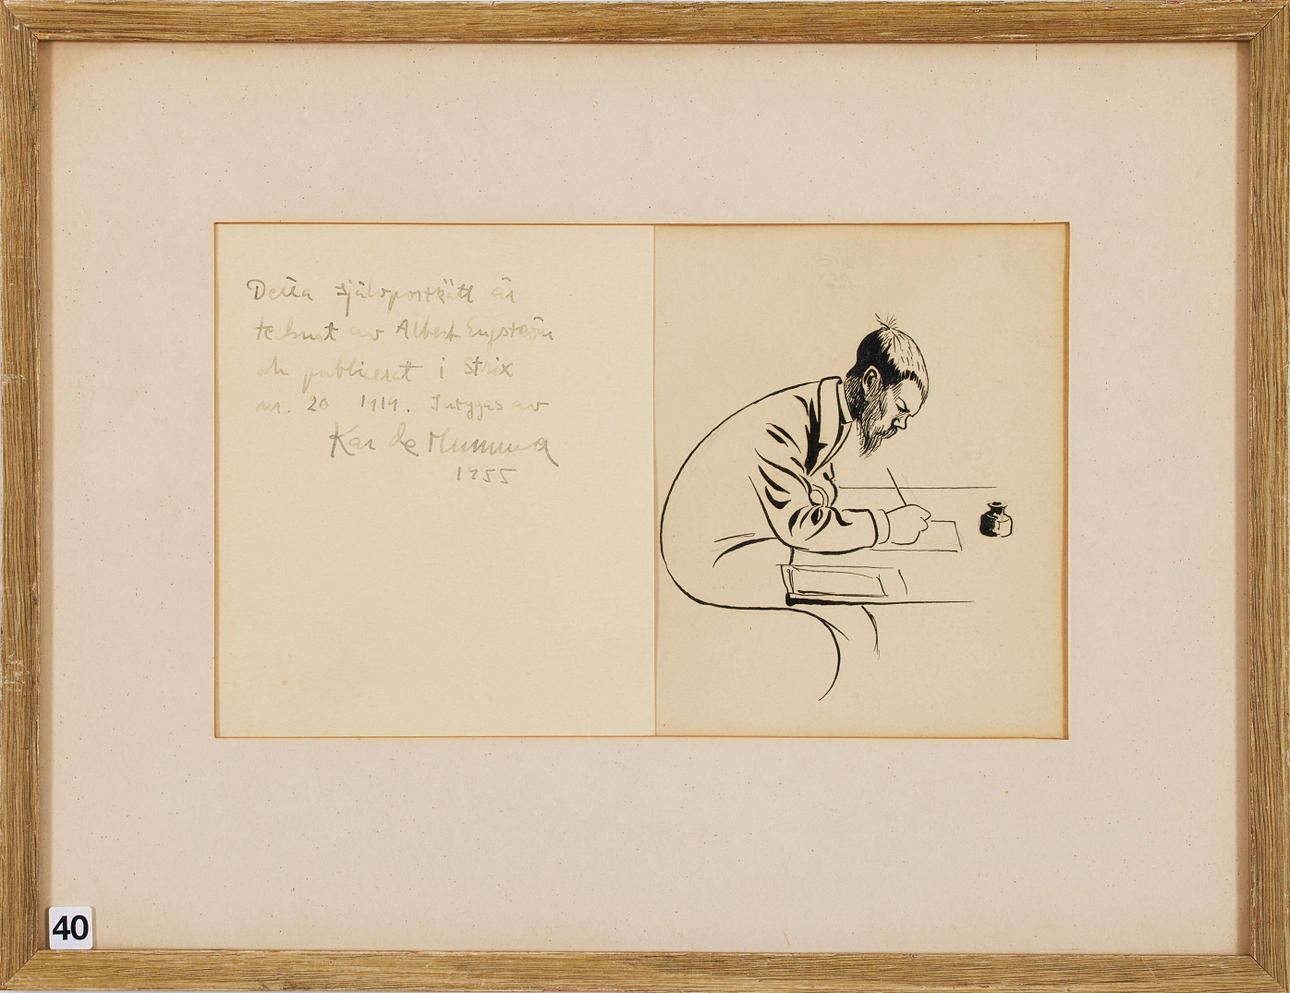 Detta självporträtt är
tecknat av Albert Engström
och publicerat i Strix
nr. 20 1919. Intygas av
Kar de Mumma
1955
40